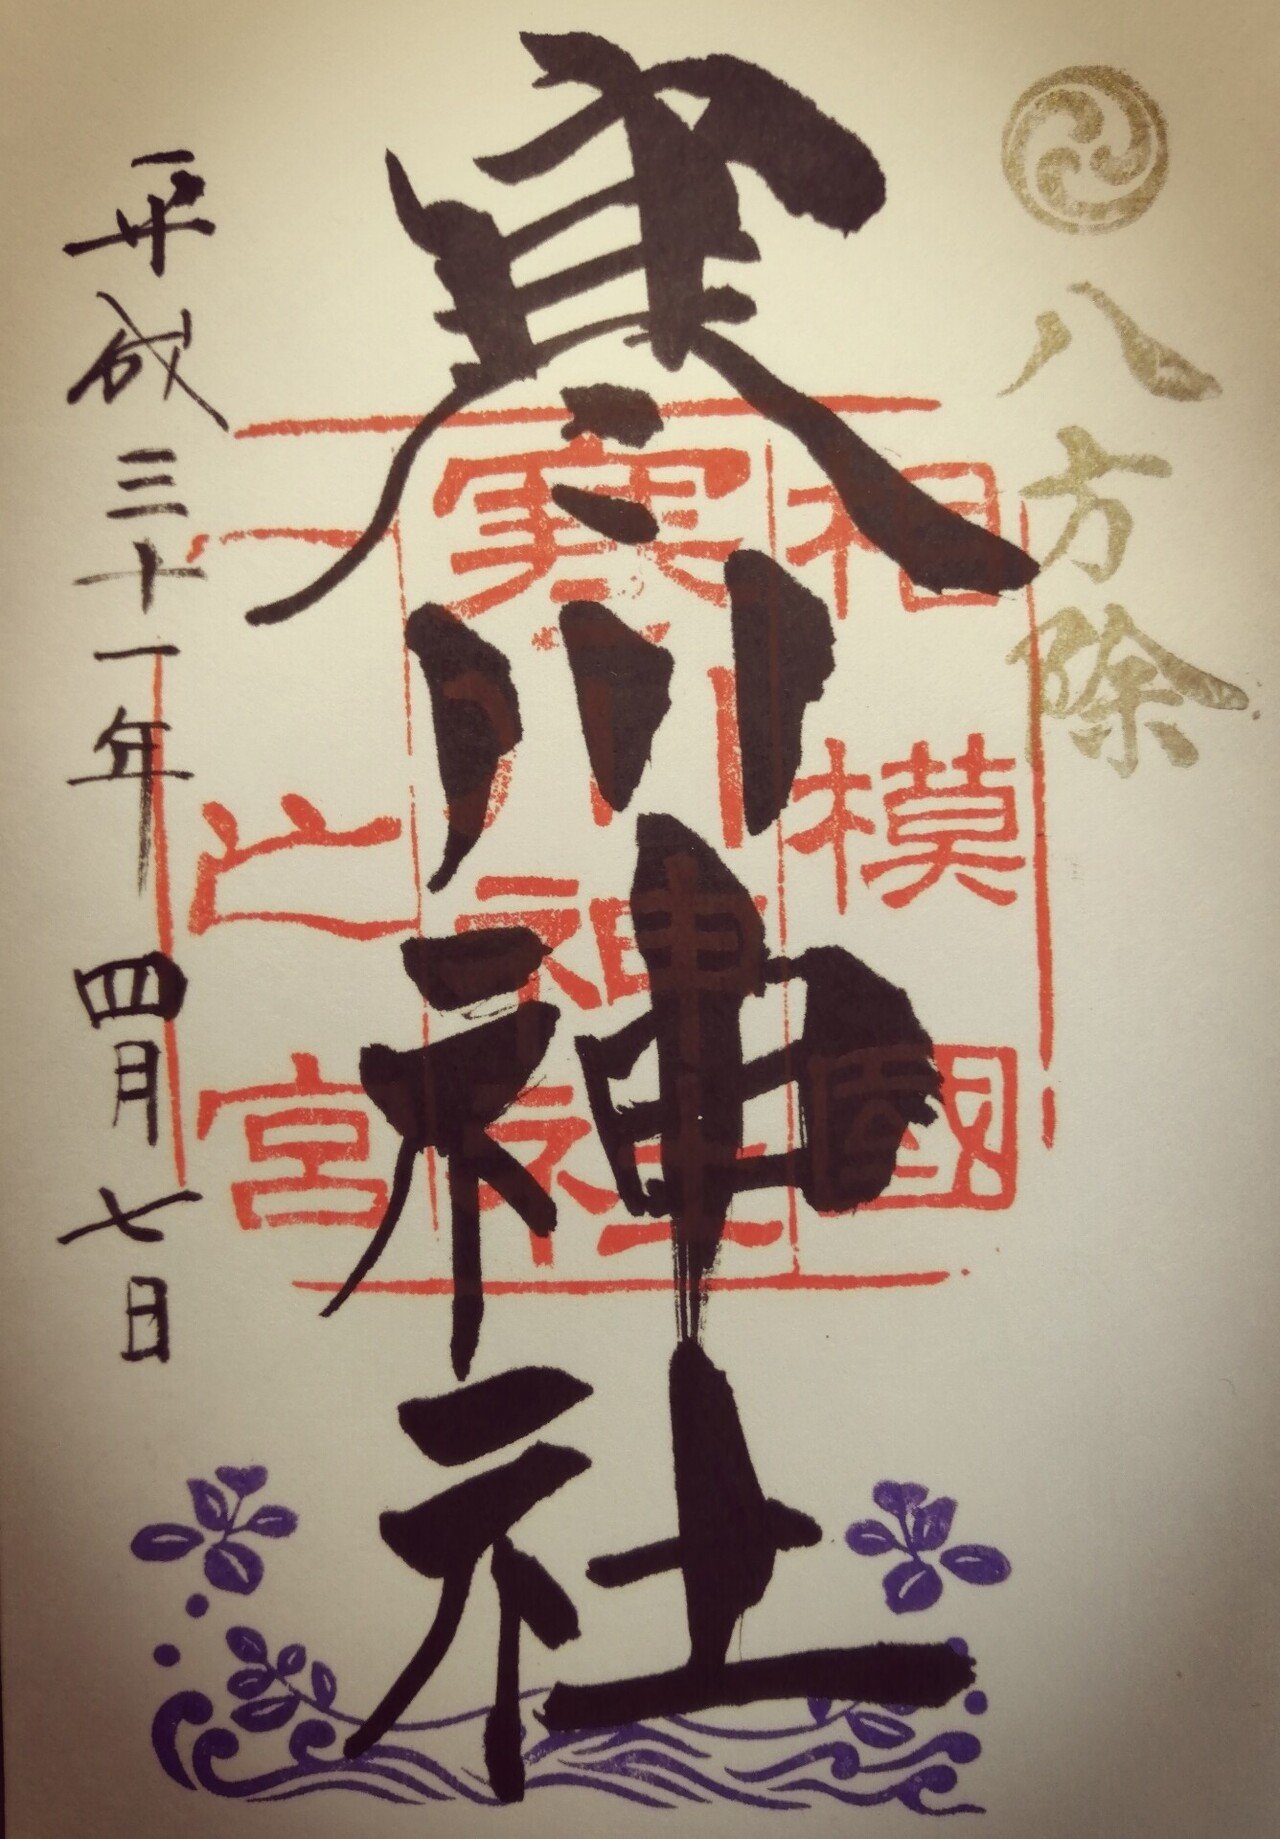 八方除
寒川神社
相模國
寒川神社
一之宮
平成三十一年 四月 七日